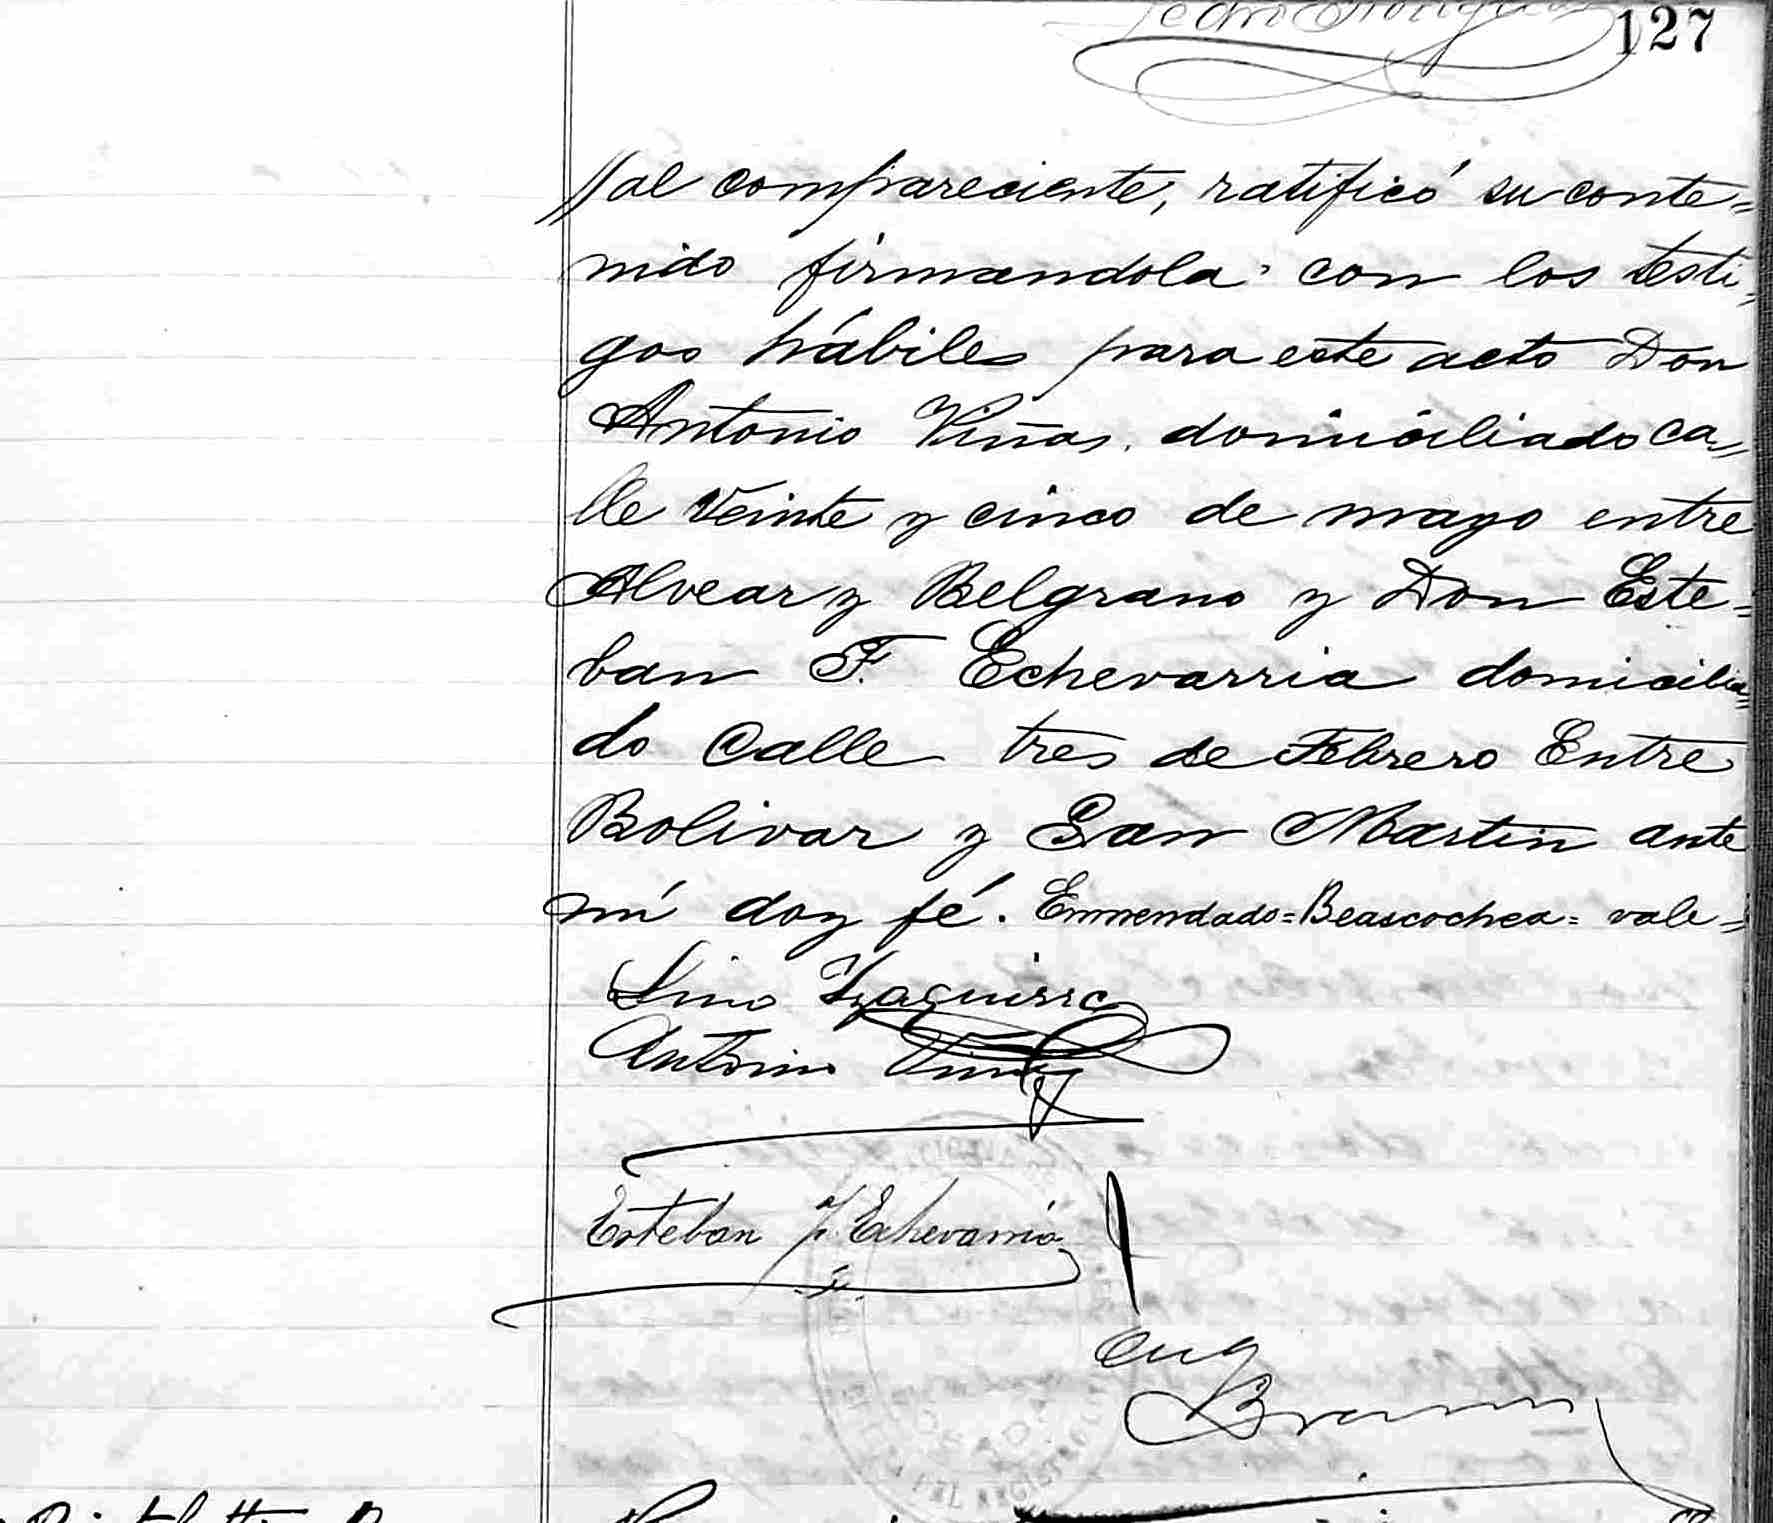 127
//al compareciente, ratificó su conte=
nido firmandola con los testi=
gos hábiles para este acto Don
Antonio Viñas, domiciliado ca=
lle Veinte y cinco de mayo entre
Alvear y Belgrano y Don Este=
ban F. Echevarria domicilia=
do Calle tres de Febrero Entre
Bolivar y San Martin ante
mí doy fé. Enmendado=Beascochea= vale=
Lino Yzaguirre
Antonio Viñas
Esteban F. Echevarria